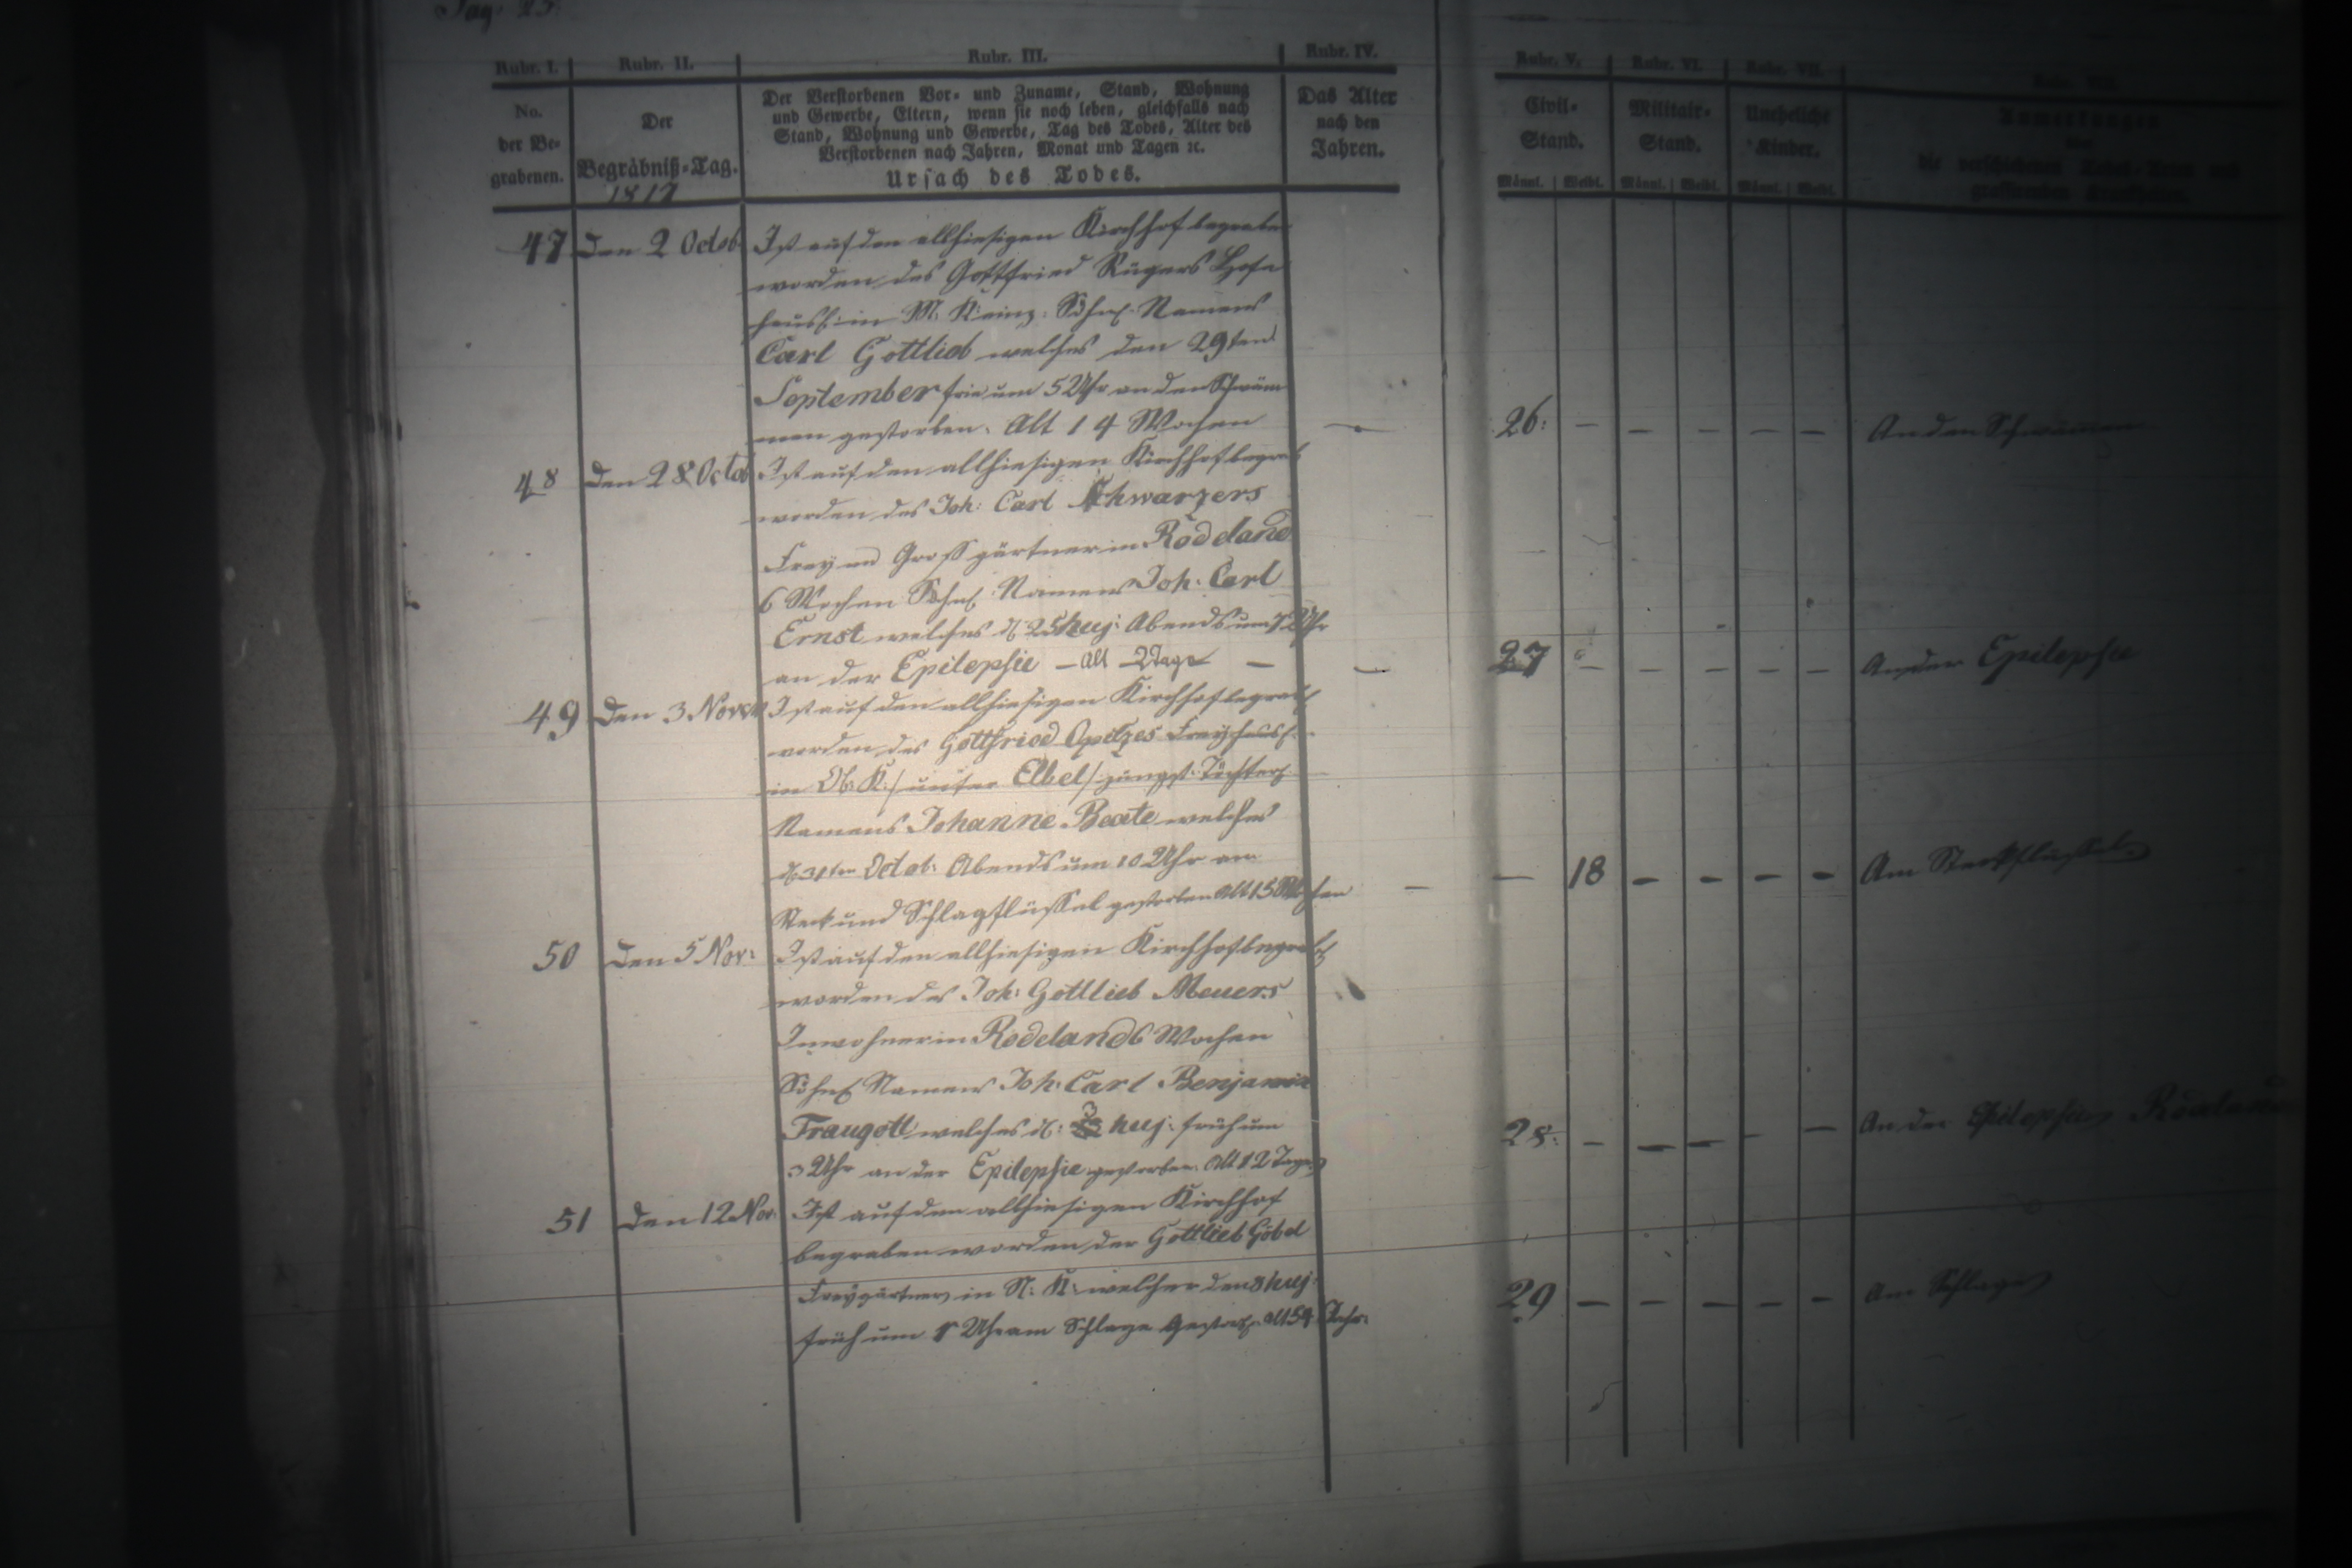 Pag. 25.
Rubr. I. Rubr. II. Rubr. III. Rubr. IV. Rubr. V. Rubr. VI. Rubr. VII.
No. der Be- grabenen.
Der Begräbniß-Tag. 1817
Der Verstorbenen Vor- und Zuname, Stand, Wohnung
und Gewerbe, Eltern, wenn sie noch leben, gleichfalls nach
Stand, Wohnung und Gewerbe, Tag des Todes, Alter des
Verstorbenen nach Jahren, Monat und Tagen ꝛc.
Ursach des Todes.
Das Alter nach den Jahren.
Civil- Stand. Männl. Weibl.
Militair- Stand. Männl. Weibl.
Uneheliche Kinder. Männl. Weibl.
Anmerkungen
über
die verschiedenen Todes-Arten und
grassirenden Krankheiten.
47 Den 2 Octob. Ist auf den allhiesigen Kirchhof begraben
worden des Gottfried Rügers
in M. Söhnl. Namens
Carl Gottlieb welches den 29ten
September früe um 5 Uhr an den Schwäm
men gestorben. Alt 14 Wochen — 26: — — — — — An den Schwämen
48 Den 28 Octob Ist auf den allhiesigen Kirchhof begrab
worden des Joh: Carl Schwarzers
Frey und Grossgärtner in Rödeland
6 Wochen Söhnl. Namens Joh. Carl
Ernst welches d. 25 huj: Abends um 7 Uhr
an der Epilepsie — Alt — 2 Tage — — 27 — — — — — An der Epilepsie
49 Den 3 Novem Ist auf den allhiesigen Kirchhof begrab
worden des Gottfried Opitzes Freyhäusl.
in Ob. K: / unter Elbel / jüngst. Töchterl.
Namens Johanne Beate welches
d. 31ten Octob: Abends um 10 Uhr am
Steck und Schlagflüssel gestorben Alt 15 Wochen — — 18 — — — — Am Steckflüssel
50 Den 5 Nov: Ist auf den allhiesigen Kirchhof begrab
worden des Joh: Gottlieb Meuers
Inwohner in Rödeland 6 Wochen
Söhnl. Namens Joh: Carl Benjamin
Traugott welches d: 3 huj: früh um
3 Uhr an der Epilepsie gestorben. Alt 12 Tage 28: — — — — — An der Epilepsie Rödeland
51 Den 12 Nov: Ist auf den allhiesigen Kirchhof
begraben worden der Gottlieb Göbel
Freygärtner in N: K: welcher den 8 huj:
früh um Uhr am Schlage Alt 54 Jahr. 29 — — — — — Am Schlage